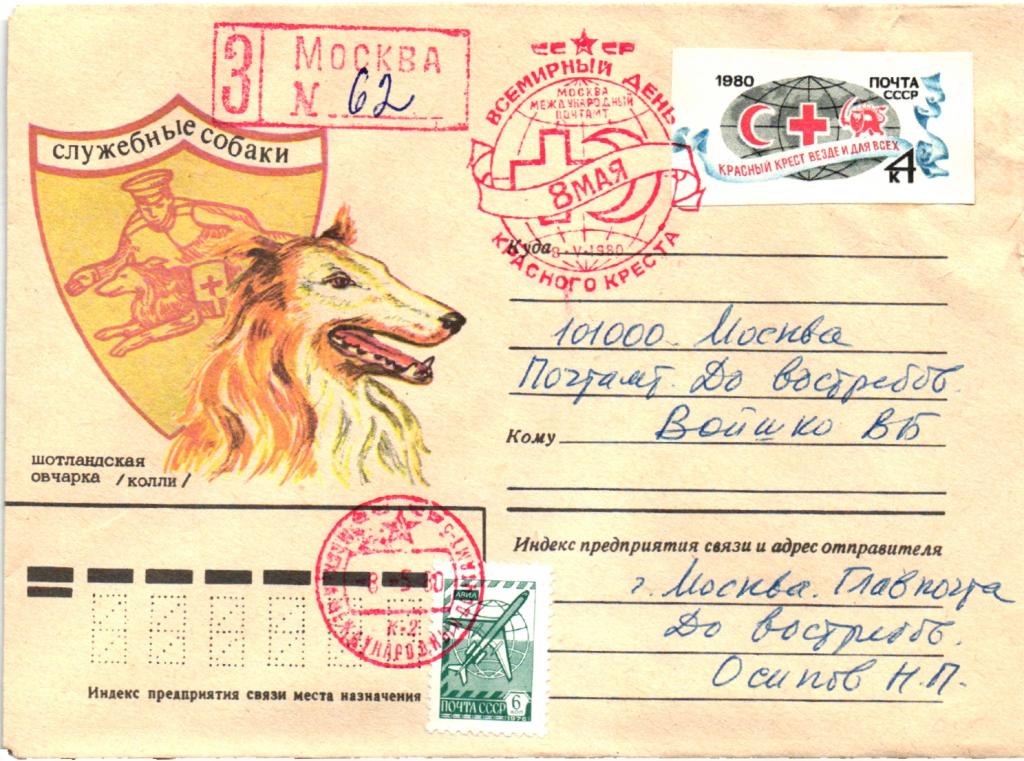 З МОСКВА
N 62
СССР
ВСЕМИРНЫЙ ДЕНЬ
МОСКВА
МЕЖДУНАРОДНЫЙ
ПОЧТАМТ
8 МАЯ
8-V-1980
КРАСНОГО КРЕСТА
1980 ПОЧТА
СССР
КРАСНЫЙ КРЕСТ ВЕЗДЕ И ДЛЯ ВСЕХ
4 к
служебные собаки
шотландская
овчарка /колли/
Куда
101000 Москва
Почтамт. До востребов.
Кому Войшко ВБ
Индекс предприятия связи и адрес отправителя
г. Москва. Главпочта
До востребов.
Осипов Н.П.
-8 -5 80
К-2
МЕЖДУНАРОДНЫЙ
АВИА
ПОЧТА СССР 6
КОП
1976
Индекс предприятия связи места назначения